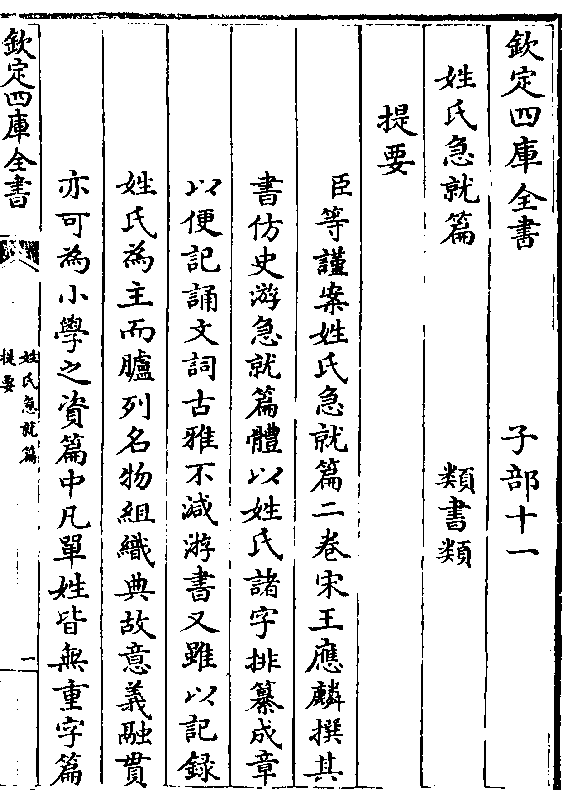 欽定四庫全書 子部十一
姓氏急就篇 類書類
提要
臣等謹案姓氏急就篇二卷宋王應麟撰其
書仿史游急就篇體以姓氏諸字排纂成章
以便記誦文詞古雅不減游書又雖以記録
姓氏為主而臚列名物組織典故意義融貫
亦可為小學之資篇中凡單姓皆無重字篇
欽定四庫全書
姓氏急就篇
提要
一